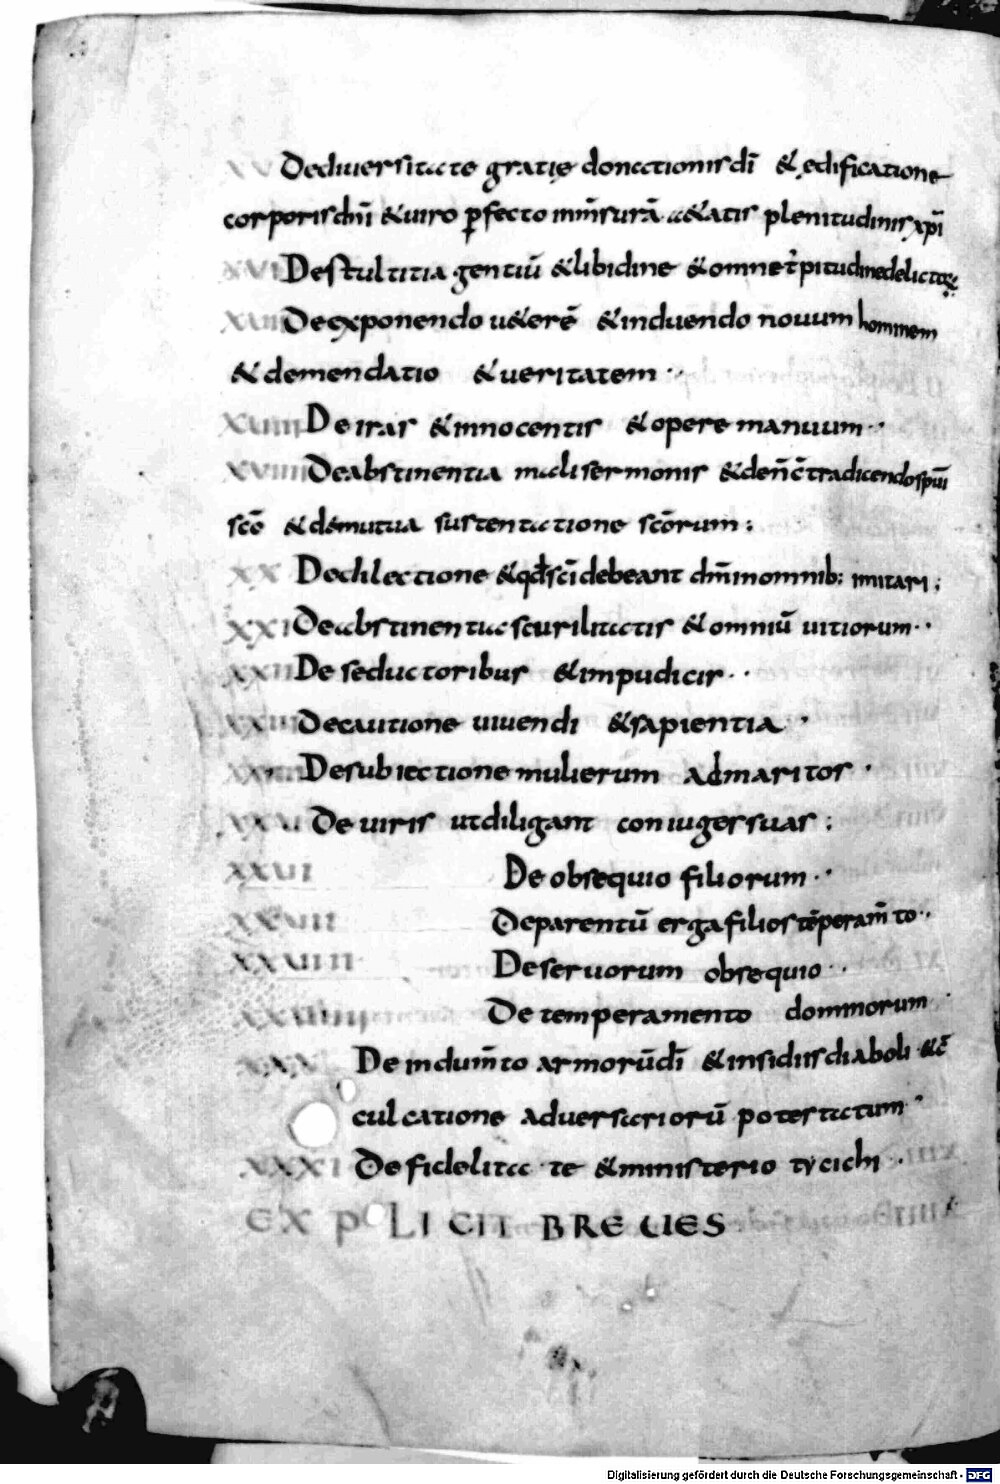 XV Dediuersitate gratię donationis dī & ędificatione
corporis dn̄i & uiro ꝑfecto in m̄surā aetatis plenitudinis xp̄i
XVI De stultitia gentiū & libidine & omne t̄pitudine delictoꝝ
XVII De exponendo u&erē & induendo nouum hominem
& demendatio & ueritatem
XVIII De iras & innocentis & opere manuum
XVIIII De abstinentia mali sermonis & de n̄ c̄tradicendo spūi
sc̄o & de mutua sustentatione sc̄orum :
XX De dilectione & qđ sc̄i debeant dn̄m in omnib: imitari :
XXI De abstinentia scurilitatis & omniū uitiorum
XXII De seductoribus & impudicis
XXIII De cautione uiuendi & sapientia
XXIIII De subiectione mulierum ad maritos
XXV De uiris ut diligant coniuges suas :
XXVI De obsequio filiorum
XXVII De parentū erga filios tēperam̄to
XXVIII De seruorum obsequio
XXVIIII De temperamento dominorum
XXX De indum̄to armorū dī & insidiis diaboli & c̄
culcatione aduersariorū potestatum
XXXI De fidelita te & ministerio tycichi
EXPLICIT BREUES
Digitalisierung gefördert durch die Deutsche Forschungsgemeinschaft - DFG